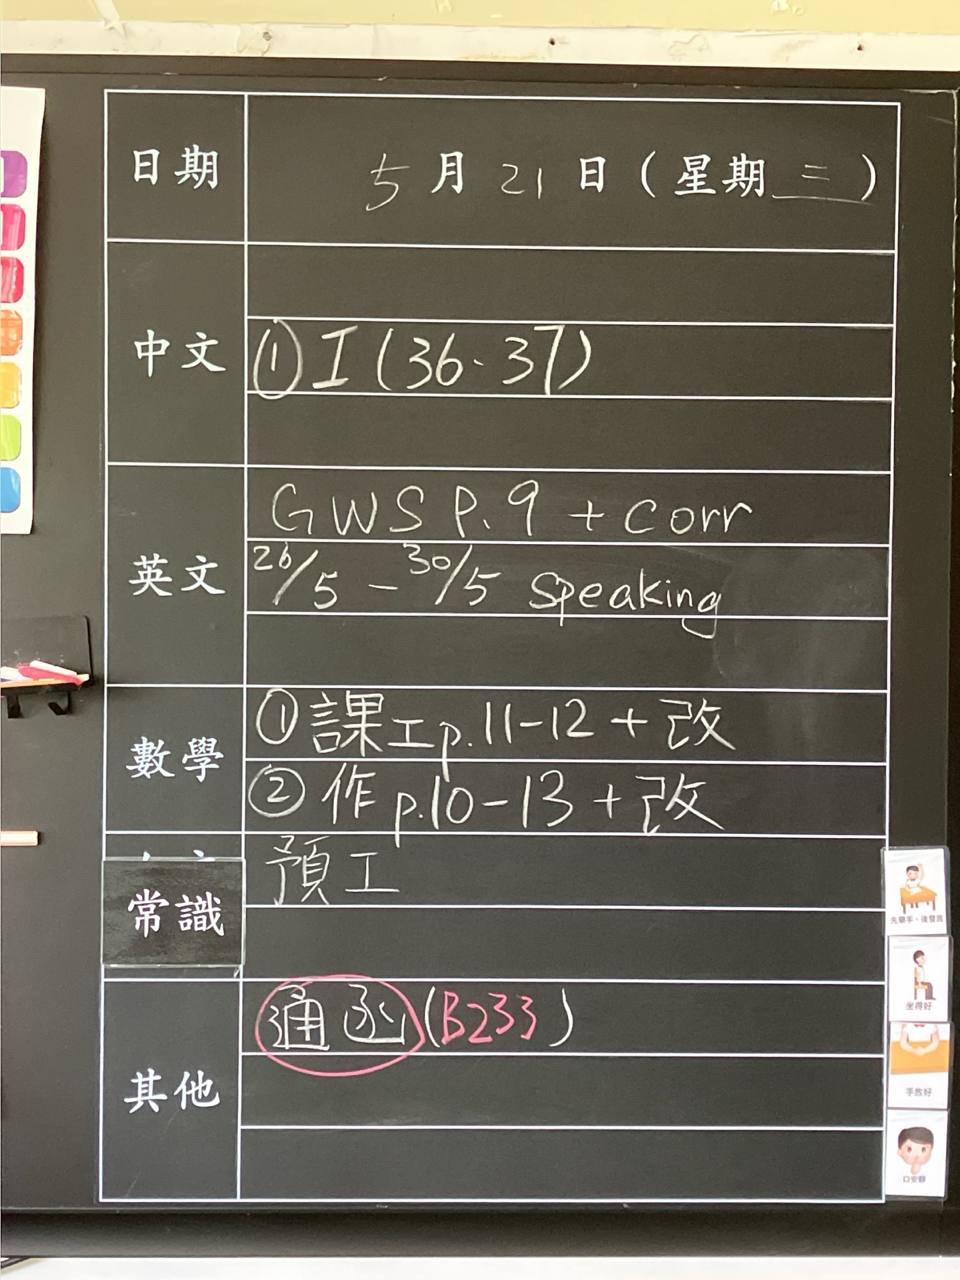 日期
5月21日（星期三）
中文
①工(36-37)
英文
GWS P.9 + corr
26/5 - 30/5 speaking
數學
①課工p.11-12 + 改
②作p.10-13 + 改
常識
預工
其他
通函(B233)
先舉手，後發言
坐得好
手放好
口安靜